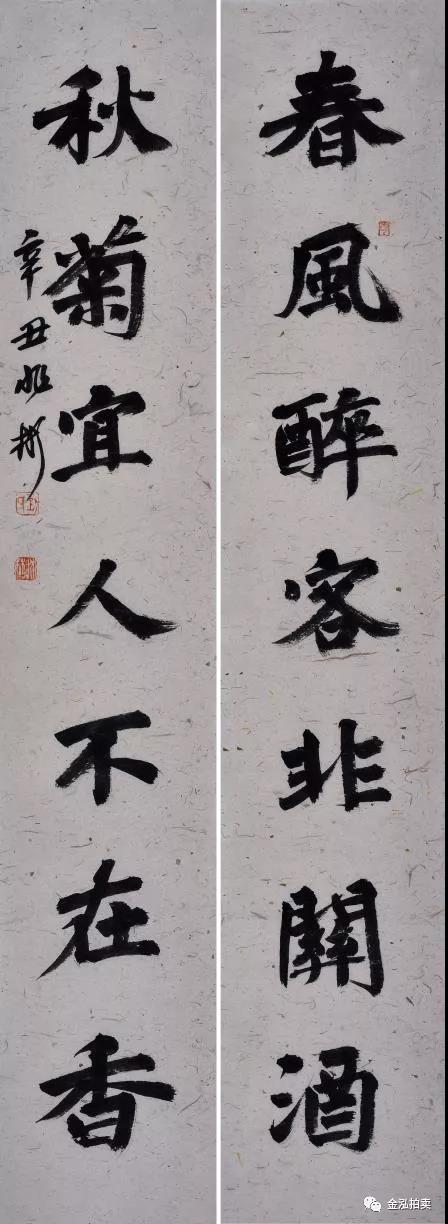 春風醉客非關酒
秋菊宜人不在香
辛丑兆彬
金泓拍卖